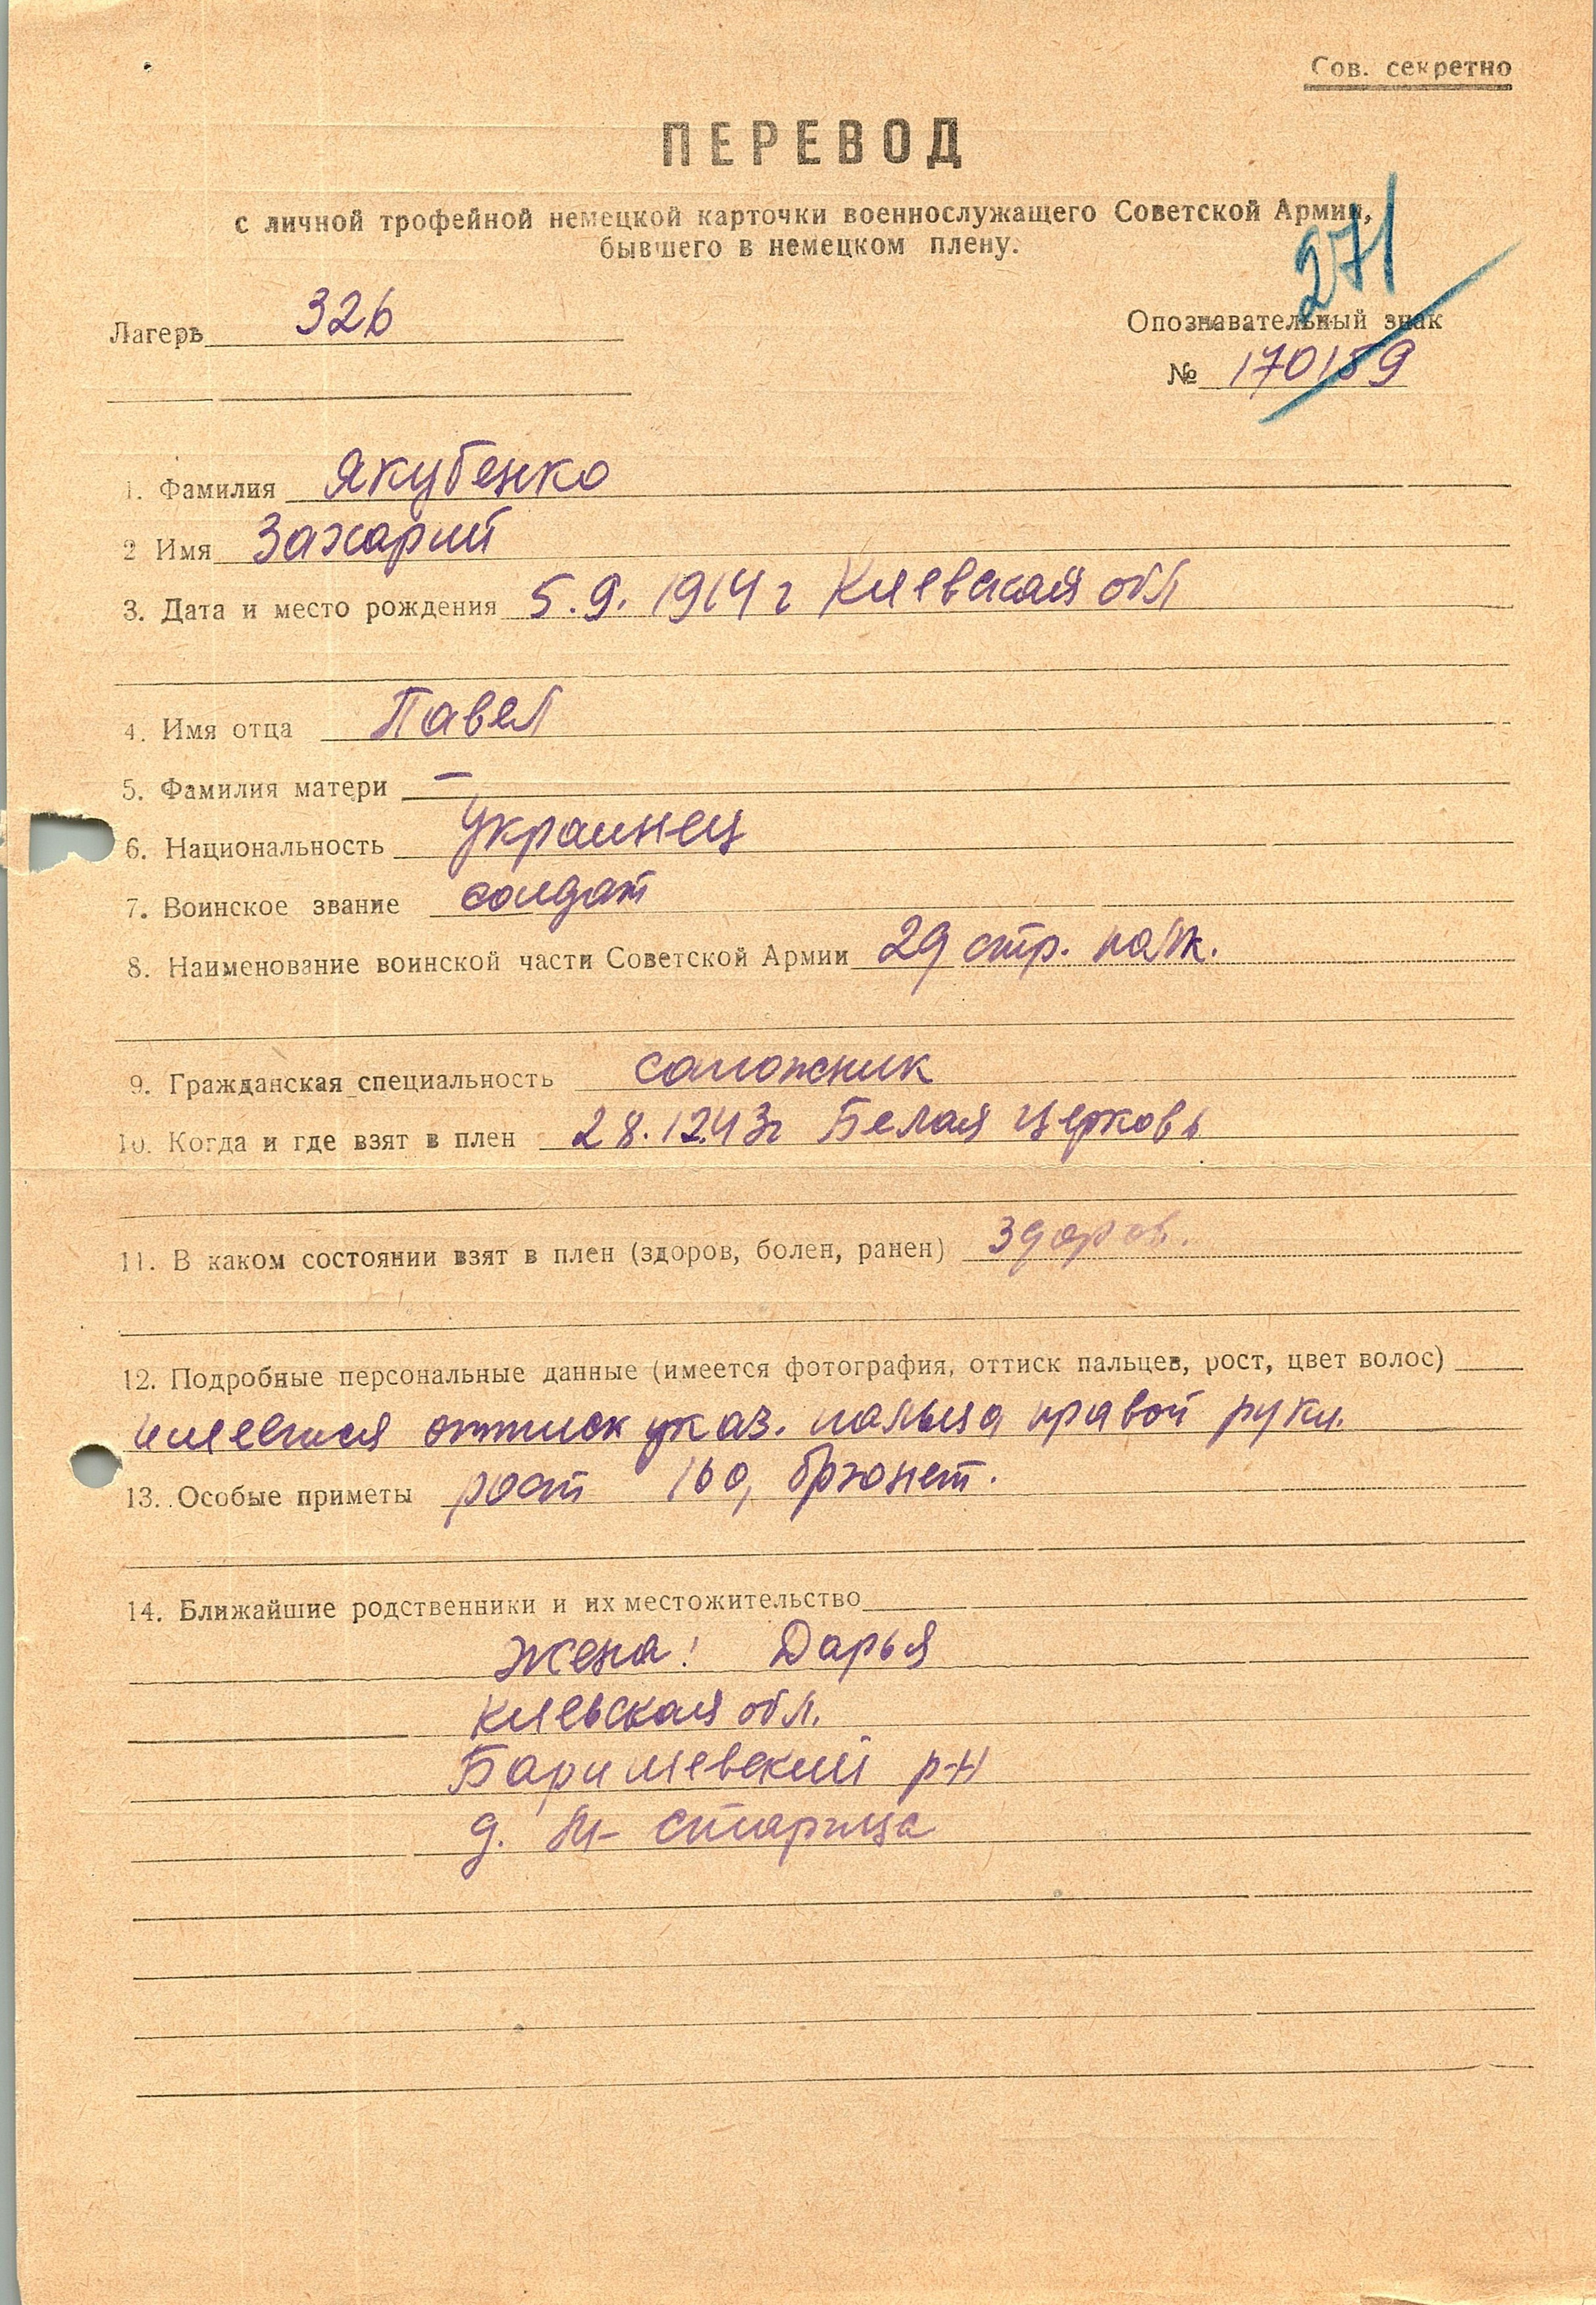 Сов. секретно
ПЕРЕВОД
с личной трофейной немецкой карточки военнослужащего Советской Армии,
бывшего в немецком плену.
271
Лагерь 326
Опознавательный знак
№ 170159
1. Фамилия Якубенко
2 Имя Захарий
3. Дата и место рождения 5.9.1914 г Киевская обл
4. Имя отца Павел
5. Фамилия матери —
6. Национальность украинец
7. Воинское звание солдат
8. Наименование воинской части Советской Армии 29 стр. полк.
9. Гражданская специальность сапожник
10. Когда и где взят в плен 28.12.43г Белая Церковь
11. В каком состоянии взят в плен (здоров, болен, ранен) здоров.
12. Подробные персональные данные (имеется фотография, оттиск пальцев, рост, цвет волос)
имеется оттиск указ. пальца правой руки.
13. Особые приметы рост 160, брюнет.
14. Ближайшие родственники и их местожительство
жена: Дарья
Киевская обл.
Баришевский р-н
д. Старица